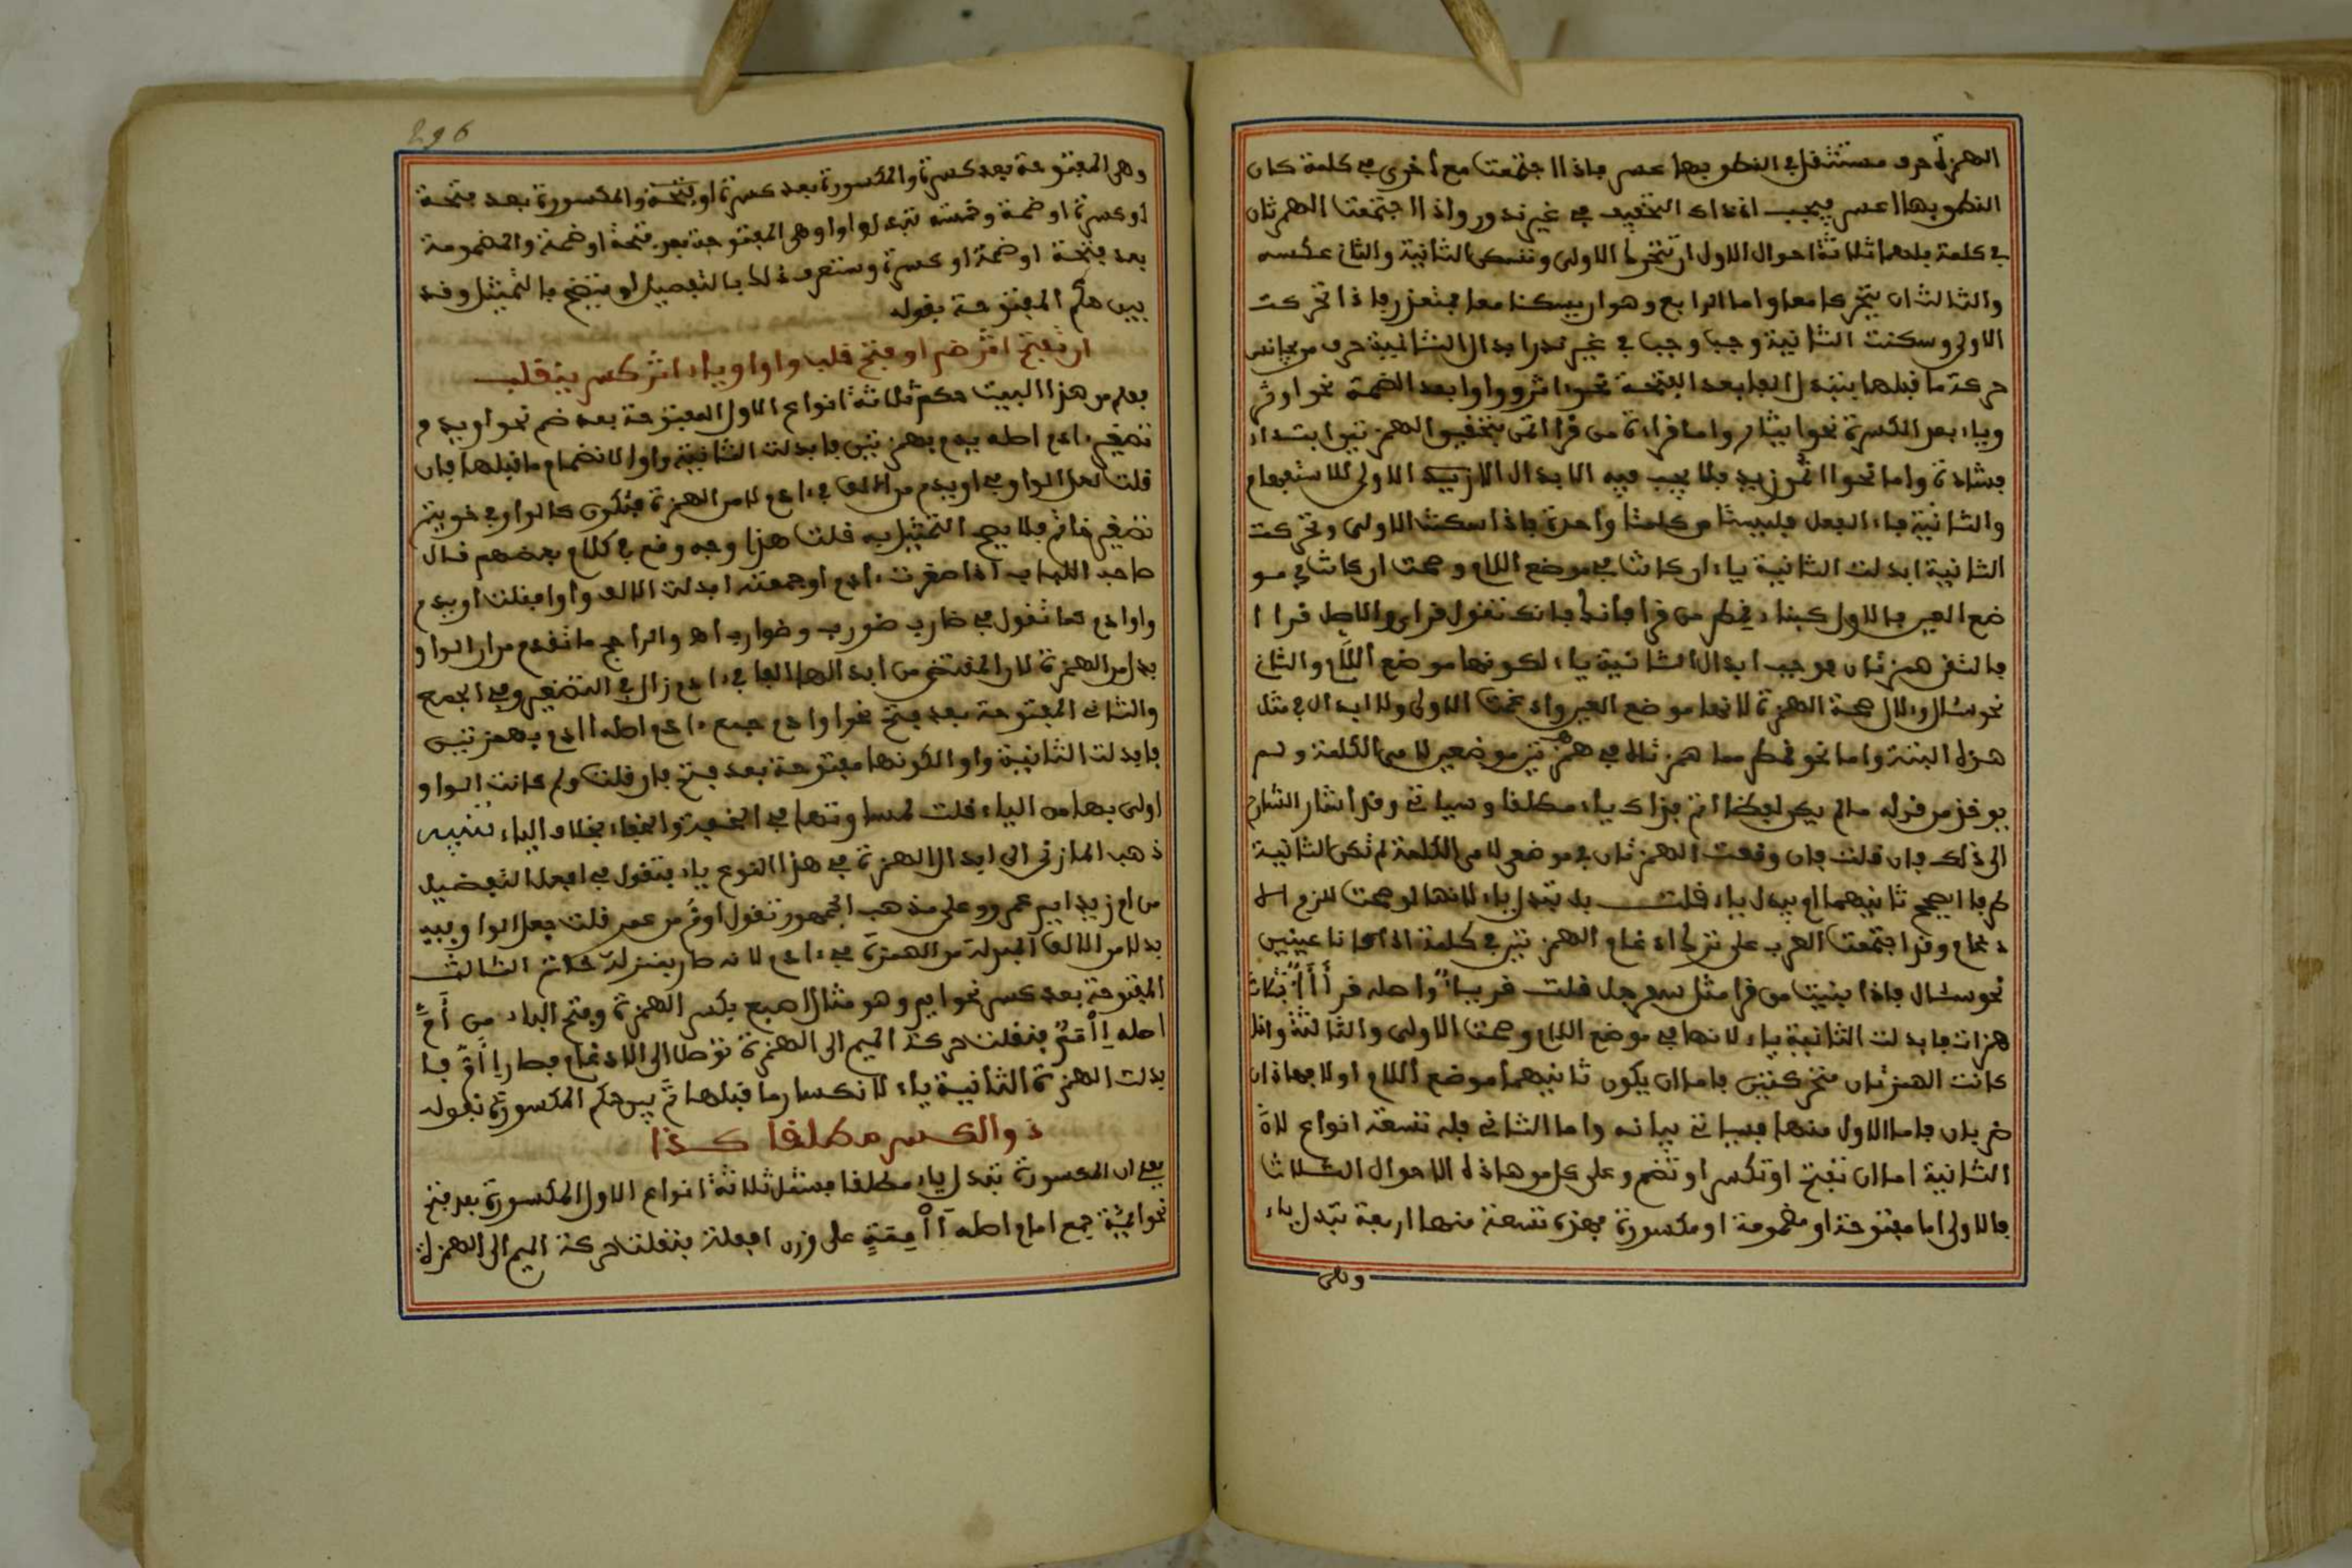 الهمزة حرف مستثقل في النطق بها عسر فاذا اجتمعت مع أخرى في كلمة كان
النطق بها اعسر فيجب اذ ذاك التخفيف في غير ندور واذا اجتمعت الهمزتان
في كلمة فلهما ثلاثة احوال الاول ان تتحرك الاولى وتسكن الثانية والثاني عكسه
والثالث ان يتحركا معا واما الرابع وهو ان يسكنا معا فمتعذر فاذا تحركت
الاولى وسكنت الثانية وجب في غير ندرا ابدال الثانية حرف من مجانس
حركة ما قبلها فتبدل الفا بعد الفتحة نحو اثر وواوا بعد الضمة نحو اوثر
وياء بعد الكسرة نحو ايثار واما قراءة من قرأ بتحقيق الهمزتين ابتداء
فشاذة واما نحو أأتمن زيد فلا يجب فيه الابدال الاولى للاستفهام
والثانية فاء الفعل فليستا من كلمة واحدة فاذا سكنت الاولى وتحركت
الثانية ابدلت الثانية ياء ان كانت في موضع اللام وصحت ان كانت في مو
ضع العين فالاول كبناء قمطر من قرا فانك تقول قراي والاصل قرا ا
فالتقى همزتان فوجب ابدال الثانية ياء لكونها موضع اللام والثاني
نحو سئال ولال صحة الهمزة لانها موضع العين وادغمت الاولى ولا ابدال في مثل
هذه البتة واما نحو قمطر مما همزتاه في موضع لام الكلمة ولم
يوخذ من قوله ما لم يكن لفظا اتم فذاك ياء مطلقا وسياتي وقد اشار الشارح
الى ذلك فان قلت فان وقعت الهمزتان في موضع لام الكلمة لم تكن الثانية
طرفا ايصح ثانيهما او يبدل ياء قلت بل تبدل ياء لانها لو صحت للزم الا
دغام وقد اجتمعت العرب على ترك ادغام الهمزتين في كلمة الا اذا كانا عينين
نحو سئال فاذا بنيت من قرا مثل سفرجل قلت قريا واصله قرأأأ بثلاث
همزات فابدلت الثانية ياء لانها في موضع اللام وصحت الاولى والثالثة وان
كانت الهمزتان متحركتين فاما ان يكون ثانيهما موضع اللام اولا فهاذان
ضربان فاما الاول منها فسياتي بيانه واما الثاني فله تسعة انواع لان
الثانية اما ان تفتح او تكسر او تضم وعلى كل من هاذه الاحوال الثلاث
فالاولى اما مفتوحة او مضمومة او مكسورة فهذه تسعة منها اربعة تبدل ياء
وهى
296
وهى المفتوحة بعد كسرة والمكسورة بعد كسرة او فتحة والمكسورة بعد فتحة
او كسرة او ضمة وخمسة تبدل واوا وهى المفتوحة بعد فتحة او ضمة والمضمومة
بعد فتحة او ضمة او كسرة وستعرف ذلك بالتفصيل او يتضح بالتمثيل وقد
بين حكم المفتوحة بقوله
ان يفتح اثر ضم او فتح قلب واوا وياء اثر كسر ينقلب
فعلم من هذا البيت حكم ثلاثة انواع الاول المفتوحة بعد ضم نحو اويدم
تصغير ءادم اصله بهمزتين فابدلت الثانية واوا لانضمام ما قبلها فان
قلت لعل الواو في اويدم من الالف في ءادم لا من الهمزة فتكون كالواو في خويتم
تصغير خاتم فلا يصح التمثيل به قلت هذا وجه وقع في كلام بعضهم قال
صاحب اللباب اذا صغرت ءادم او جمعته ابدلت الالف واوا فقلت اويدم
واوادم كما تقول في ضارب ضويرب وضوارب اه والراجح ما تقدم من ان الواو
بدل من الهمزة لان المقتضى من ابدالها الفا في ءادم زال في التصغير وفي الجمع
والثاني المفتوحة بعد فتح نحو اوادم جمع ءادم اصله اادم بهمزتين
فابدلت الثانية واوا لكونها مفتوحة بعد فتح فان قلت ولم كانت الواو
اولى بها من الياء قلت لمساوتها في بخلاف الياء تنبيه
ذهب المازني الى ابدال الهمزة في هذا النوع ياء فتقول في افعل التفضيل
من ام زيد ايم عمرو وعلى مذهب الجمهور تقول اوم من عمر قلت جعل الواو فيه
بدلا من الالف المبدلة من الهمزة في ءادم لانه صار بمنزلة خاتم الثالث
المفتوحة بعد كسر نحو ايم وهو مثال اصبع بكسر الهمزة وفتح الباء من أم
اصله إأمم فنقلت حركة الميم الى الهمزة توصلا الى الادغام فصار إأم فا
بدلت الهمزة الثانية ياء لانكسار ما قبلها ثم بين حكم المكسورة بقوله
ذو الكسر مطلقا كذا
يعني ان المكسورة تبدل ياء مطلقا فشمل ثلاثة انواع الاول المكسورة بعد فتح
نحو ايمة جمع امام اصله أأممة على وزن افعلة فنقلت حركة الميم الى الهمزة